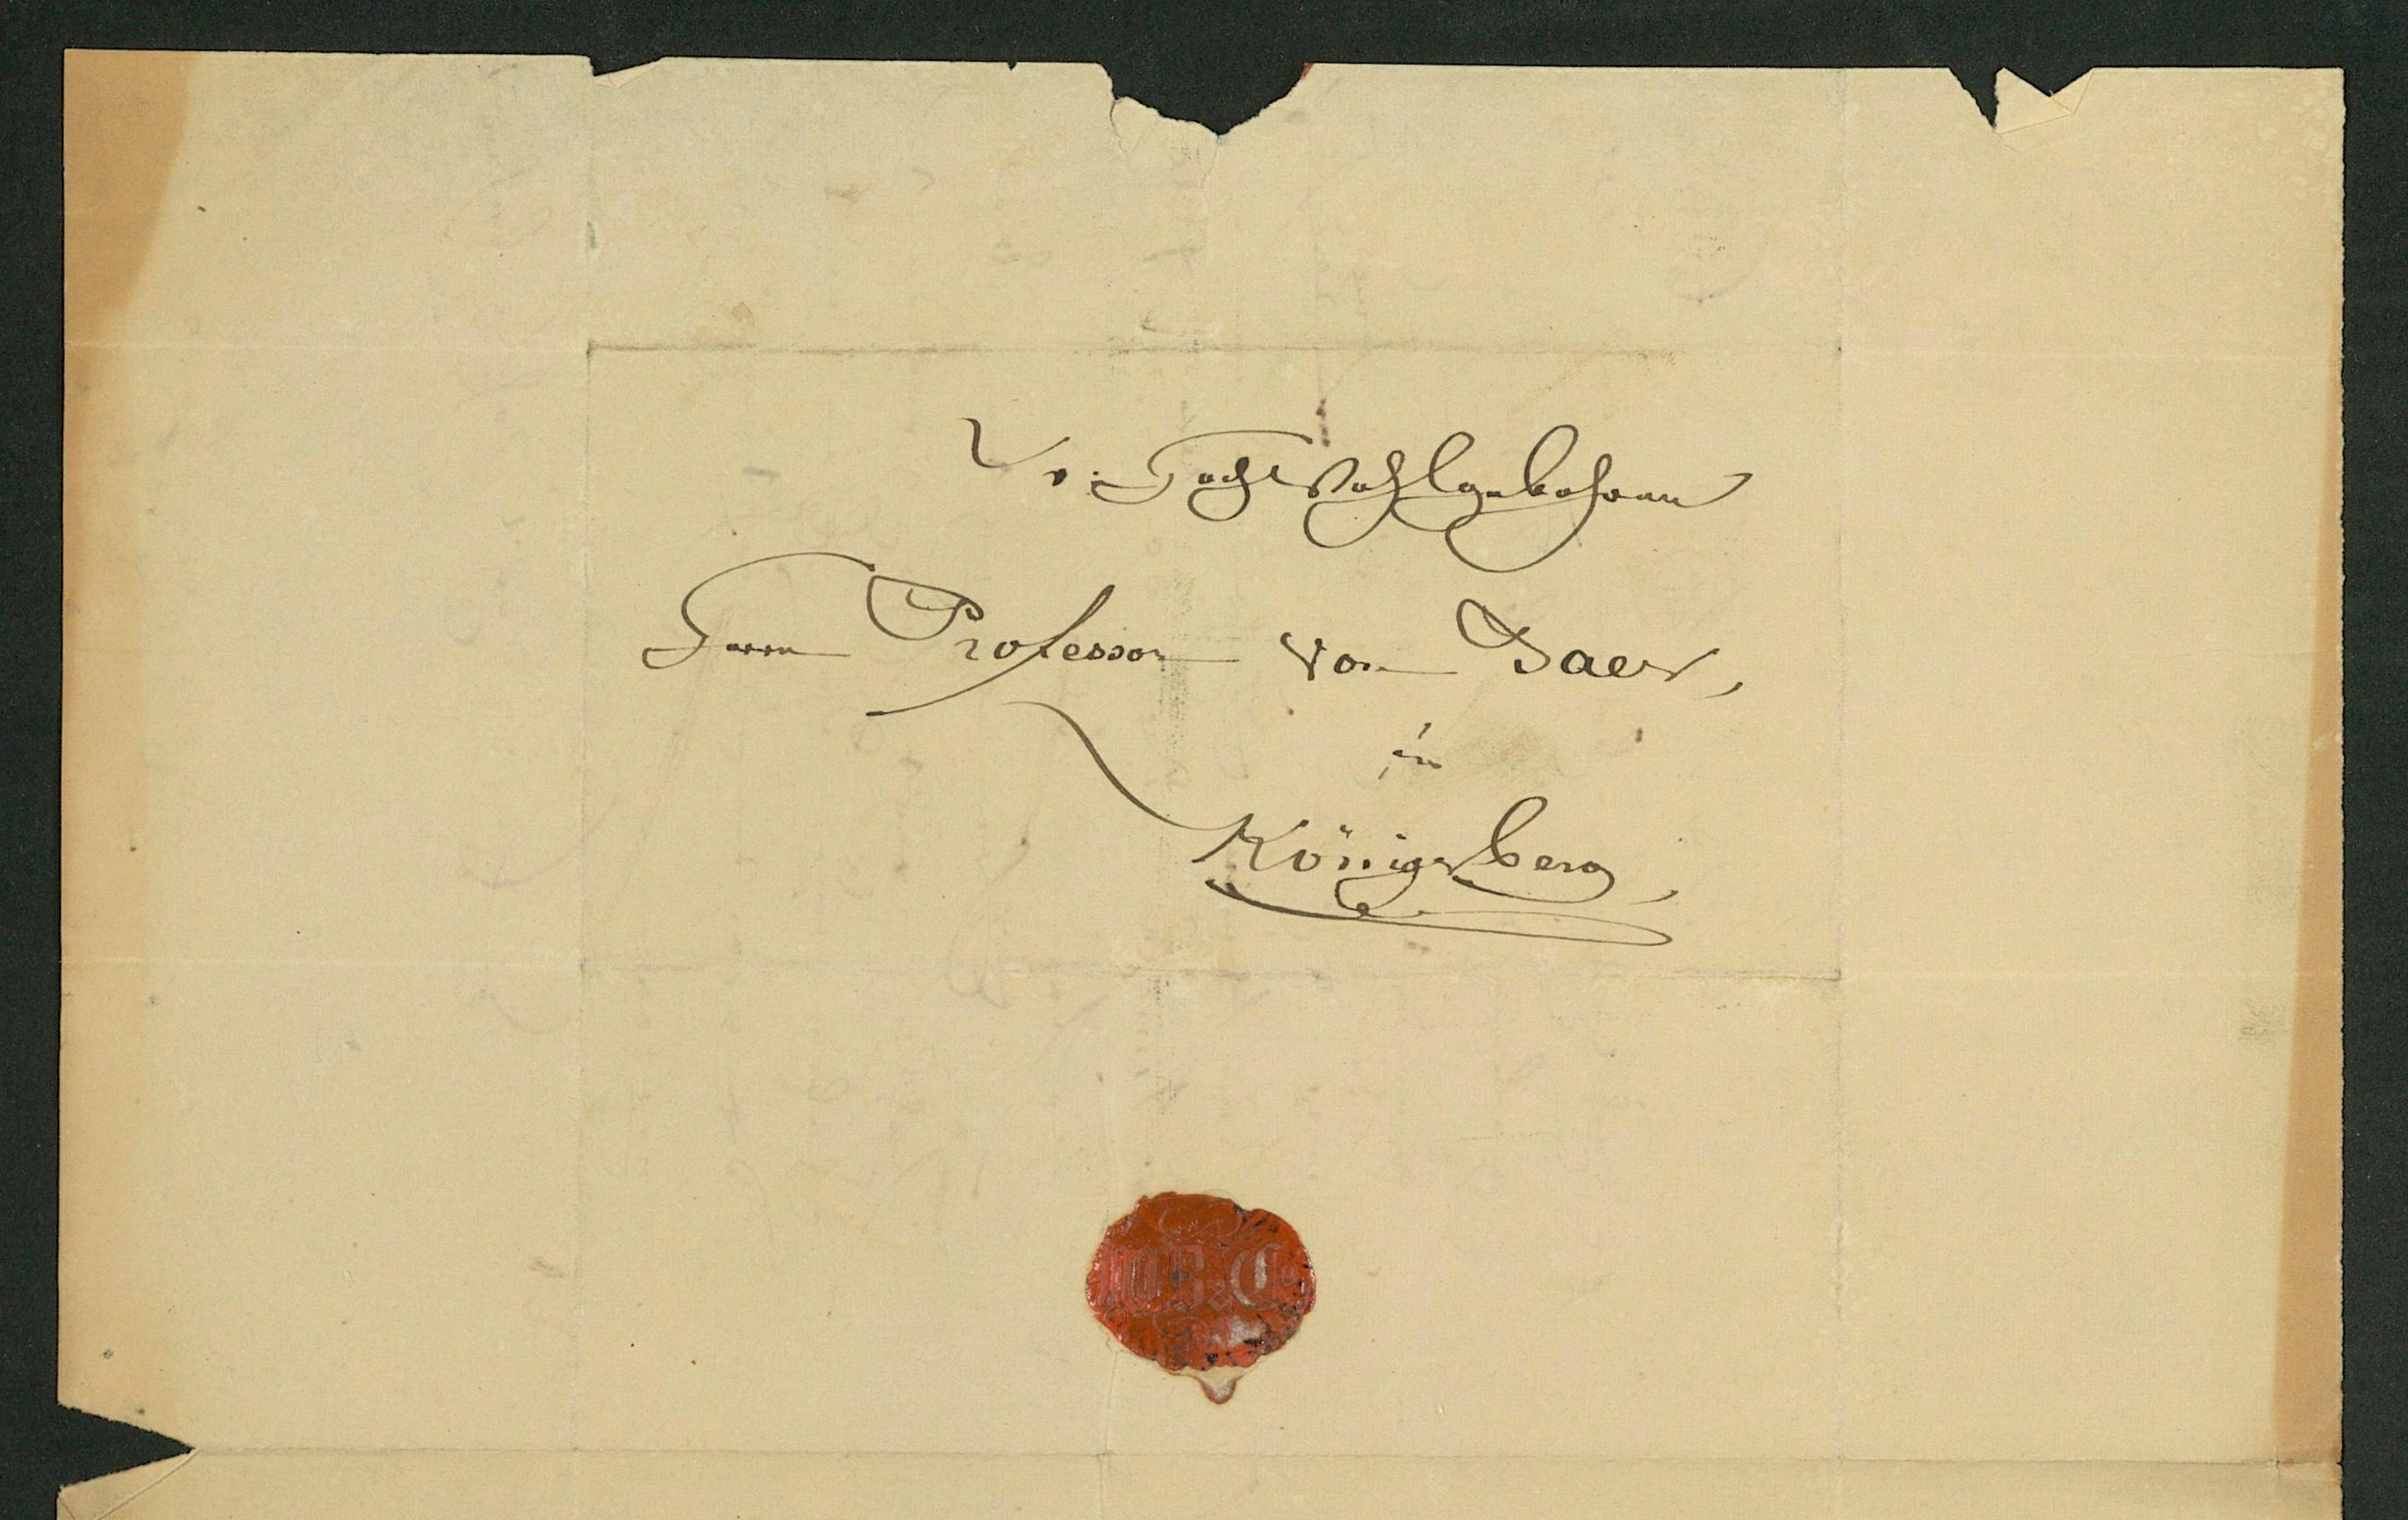 Sr. Hochwohlgebohren
Herrn Professor von Baer,
in
Königsberg,